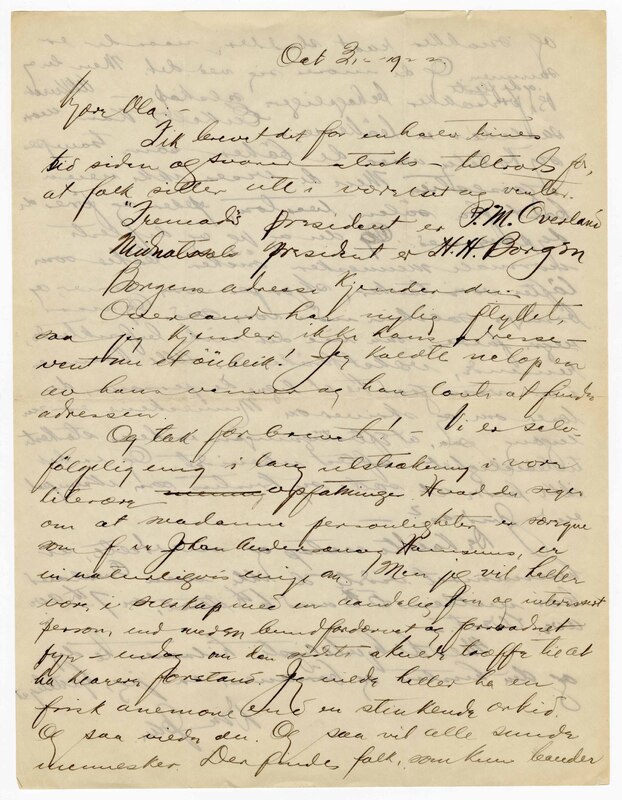 Oct 31 - 1922
Kjære Ola: -
Fik brevet det for en halv times
tid siden og svarer straks - tiltrods for,
at folk sitter utt i værelset og venter.
"Fremad's president er P. M. Overland
Midnatssols president er H. H. Borgen
Borgens adresse kjender du.
Overland har nylig flyttet,
saa jeg kjender ikke hans adresse -
vent nu et öiblik! Jeg kaldte netop en
av hans venner og han lovte at finde
adressen.
Og tak for brevet! - Vi er selv-
fölgelig enig i lang utstrækning i vore
literære opfatninger. Hvad du siger
om at saadanne personligheter
som f. ex Johan Andersens og Hamsuns, er
vi naturligvis enige om. Men jeg vil heller
være i selskap med en aandelig fin og interessert
person, end med en bundfordærvet og forraadnet
fyr - endog om den sidste skulde træffe til at
ha klarere forstand. Jeg vilde heller ha en
frisk anemone end en stinkende orkid.
Og saa vilde du. Og saa vil alle sunde
mennesker. Der findes folk, som kun